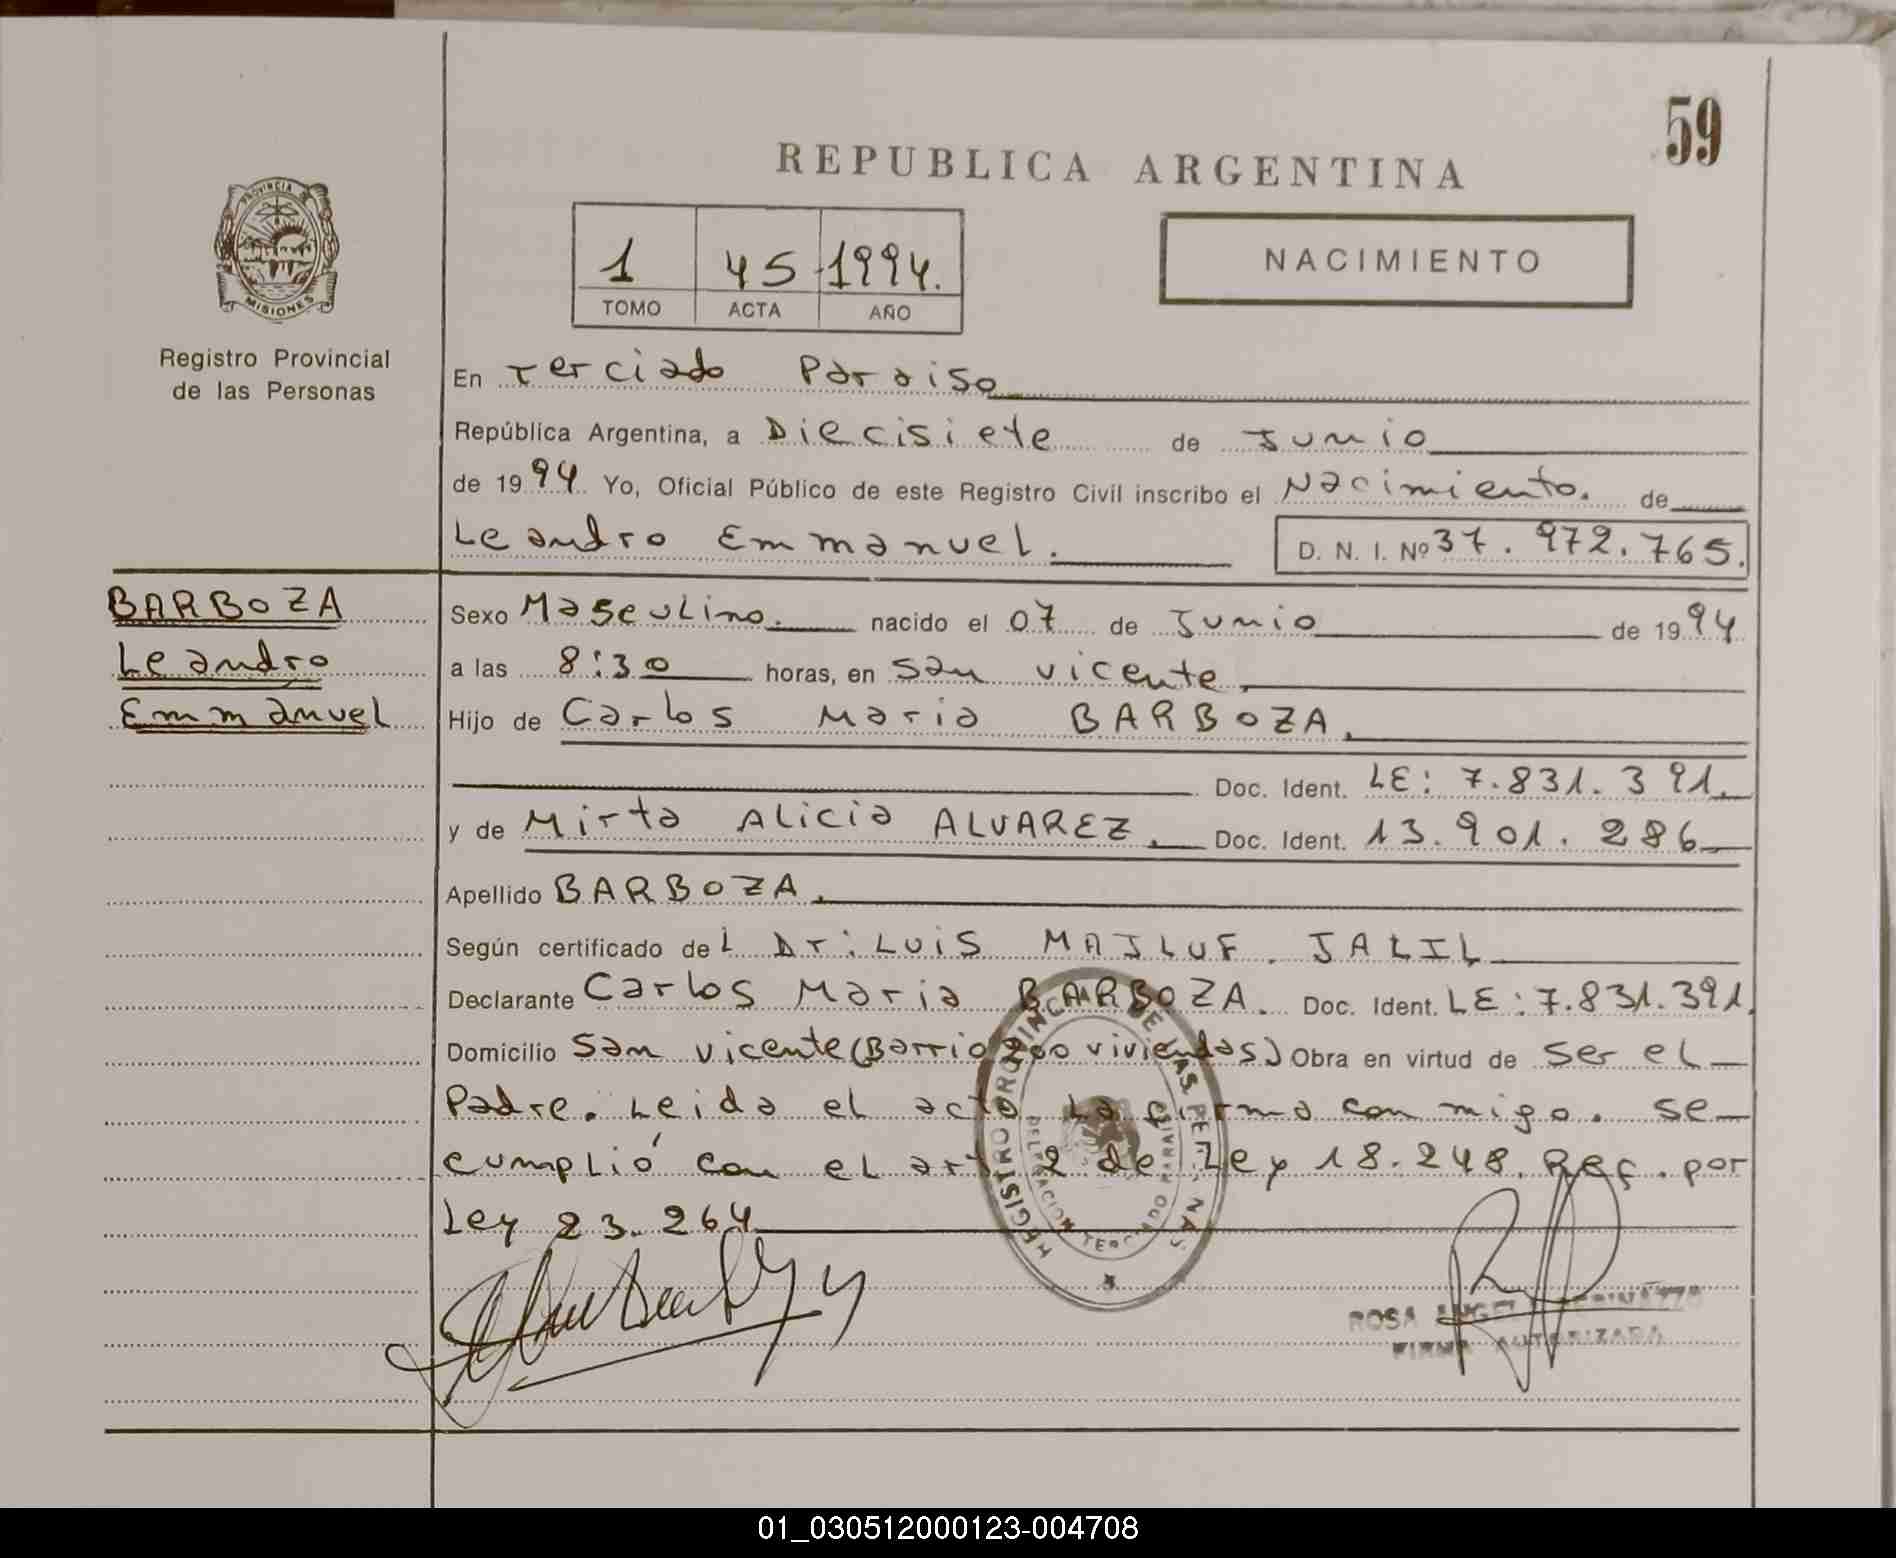 59
REPUBLICA ARGENTINA
1 45 1994.
TOMO ACTA AÑO
NACIMIENTO
PROVINCIA
MISIONES
Registro Provincial
de las Personas
En Terciado Paraiso
República Argentina, a Diecisiete de Junio
de 1994 Yo, Oficial Público de este Registro Civil inscribo el Nacimiento. de
Leandro Emmanuel. D. N. I. Nº 37.972.765.
BARBOZA
Leandro
Emmanuel
Sexo Masculino. nacido el 07 de Junio de 1994
a las 8:30 horas, en San Vicente.
Hijo de Carlos Maria BARBOZA.
Doc. Ident. LE: 7.831.391.
y de Mirta Alicia ALVAREZ. Doc. Ident. 13.901.286
Apellido BARBOZA.
Según certificado del Dr: Luis MAJLUF. JALIL
Declarante Carlos Maria BARBOZA. Doc. Ident. LE: 7.831.391.
Domicilio San Vicente (Barrio 200 viviendas) Obra en virtud de ser el
Padre. Leida el acta la firma con migo. Se
cumplió con el art 2 de Ley 18.248. Ref. por
Ley 23.264
REGISTRO PROVINCIAL DE LAS PERSONAS
DELEGACION TERCIADO PARAISO
ROSA
FIRMA AUTORIZADA
01_030512000123-004708